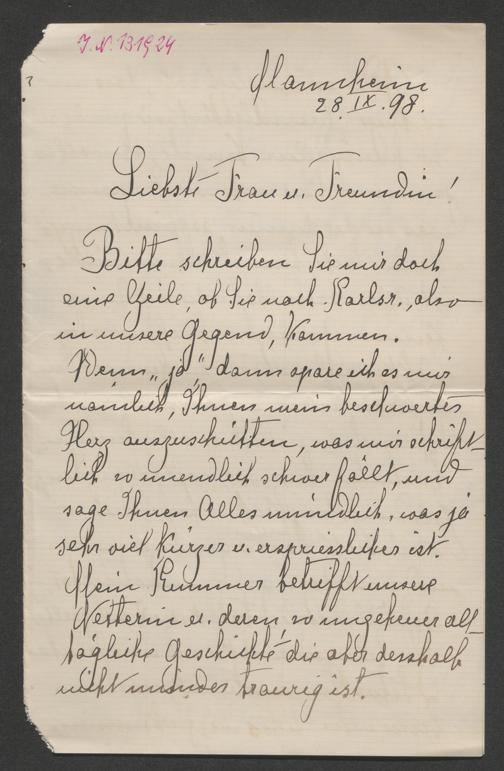 J.N. 131924
Mannheim
28. IX. 98.
Liebste Frau u. Freundin!
Bitte schreiben Sie mir doch
eine Zeile, ob Sie nach Karlsr., also
in unsere Gegend, kommen.
Wenn „ja" dann spare ich es mir
nämlich, Ihnen mein beschwertes
Herz auszuschütten, was mir schrift-
lich so unendlich schwer fällt, und
sage Ihnen Alles mündlich, was ja
sehr viel kürzer u. erspriesslicher ist.
Mein Kummer betrifft unsere
u. deren so ungeheuer all-
tägliche Geschichte die aber desshalb
nicht minder traurig ist.